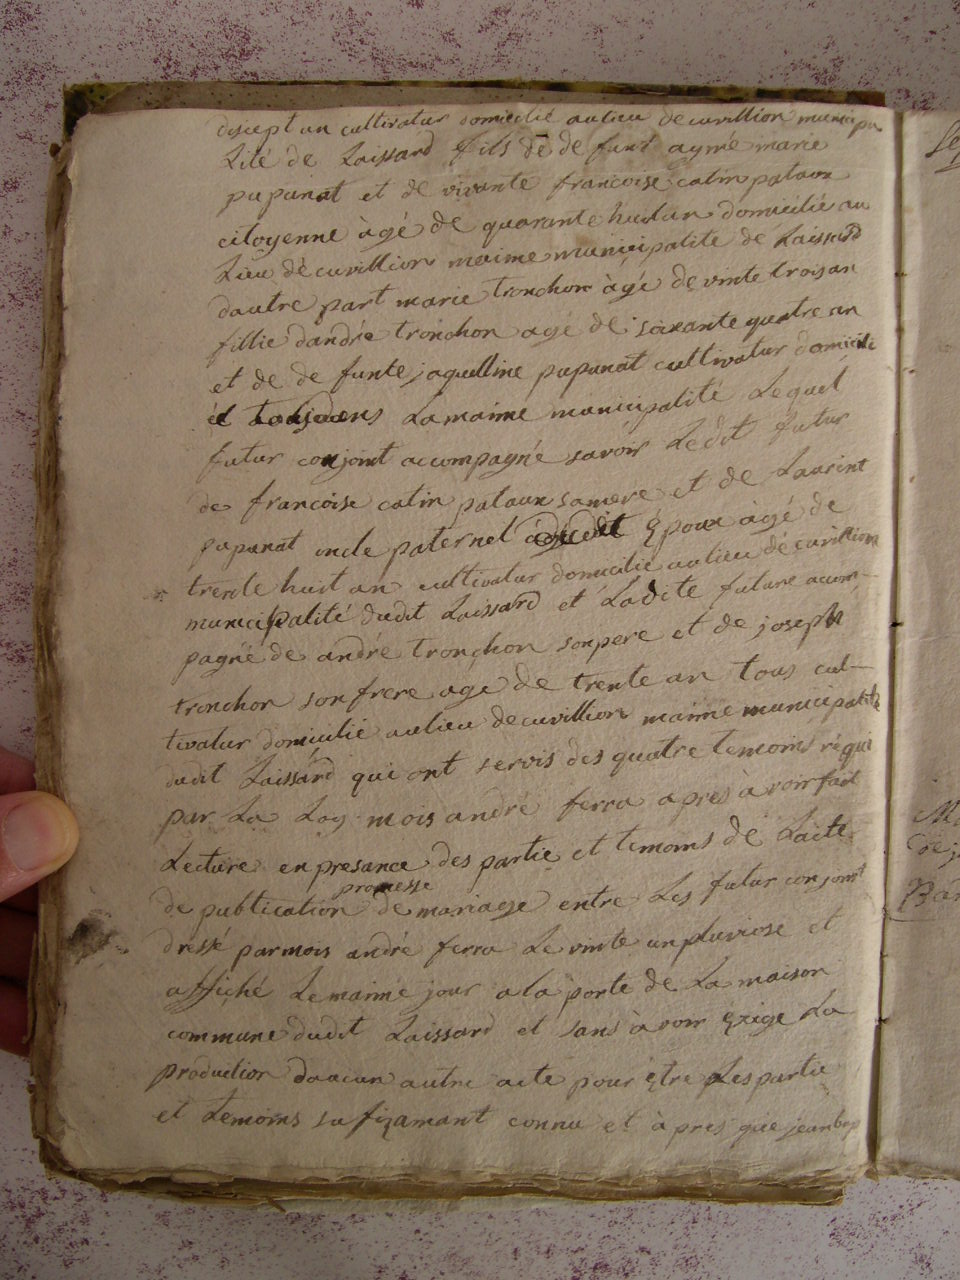 disept an cultivatur domicilié aulieu decuvillion municipa
Lité de Laissard fils de de funt aymé marie
papanat et de vivante francoise catin palaux
citoyenne àgé de quarante huit an domicilié au
Lieu dècuvillion maime municipalité de Laissard
dautre part marie tronchon àgé de vinte troisan
fillie dandré tronchon agé de soixante quatre an
et de de funte jaquelline papanat cultivatur domicilié
Lamaime municipalité Lequel
futur conjoint accompagné savoir Ledit futur
de francoise catin palaux samere et de Laurint
papanat oncle paternel Epoux àgé de
trente huit an cultivatur domicilié aulieu décuvillion
municipalité dudit Laissard et Ladite future acom-
pagné de andré tronchon sonpere et de joseph
tronchon sonfrere age de trente an tous cul-
tivatur domicilié aulieu decuvillion maime municipalité
dudit Laissard qui ont servis des quatre temoins réqui
par La Loy mois andré ferra apres àvoir fait
Lecture enpresance des partie et temoins de Lacte
promesse
de publication de mariage entre Les futur conjoint
dressé parmois andré ferra Le vinte unpluviose et
affiché Lemaime jour a la porte de La maison
commune dudit Laissard et sans àvoir Exige La
production daucun autre acte pour être Lespartie
et temoins sufizamant connu et àpres que jeanbap
Ma
de j
Bar